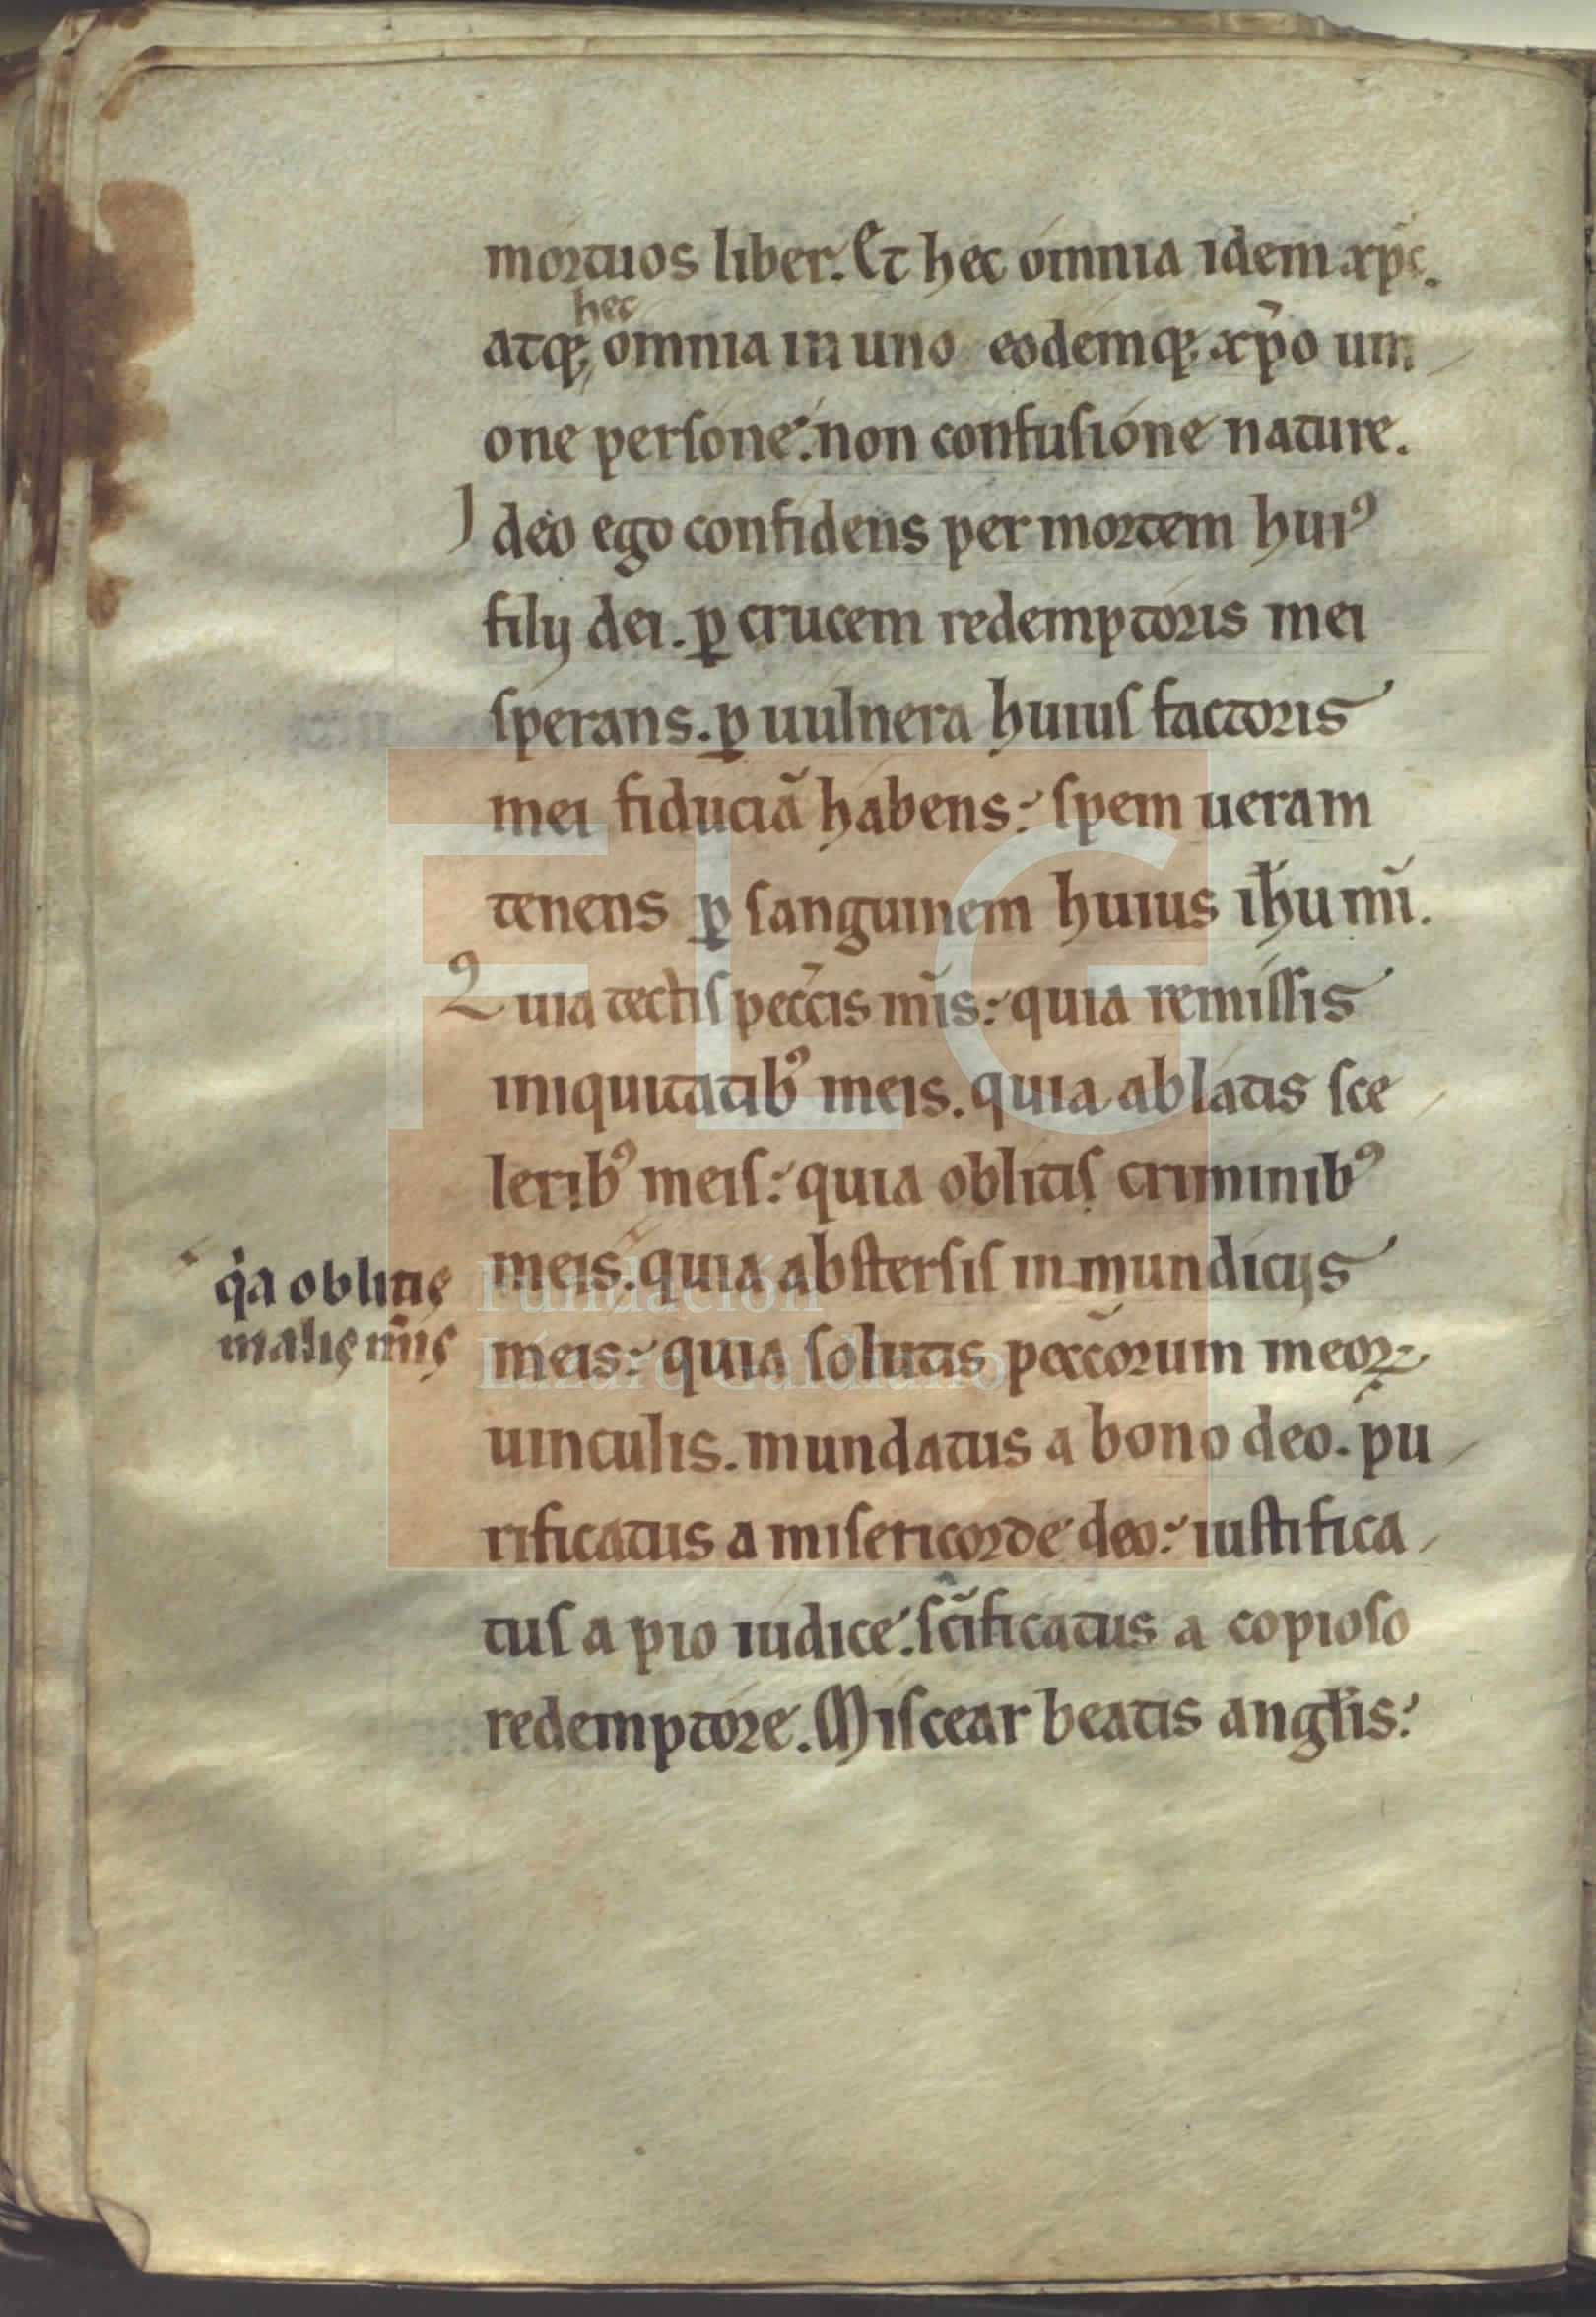 mortuos liber. Et hec omnia idem xp̄c.
hec
atq; omnia in uno eodemq; xp̄o uni
one persone. non confusione nature.
Ideo ego confidens per mortem huiꝰ
filij dei. ꝑ crucem redemptoris mei
sperans. ꝑ uulnera huius factoris
mei fiduciā habens: spem ueram
tenens ꝑ sanguinem huius ih̄u mī.
Quia tectis pecc̄is mīs: quia remissis
iniquitatibꝰ meis. quia ablatis sce
leribꝰ meis: quia oblitis criminibꝰ
meis. quia abstersis inmundicijs
qͥa oblitis
malis mīis
meis: quia solutis pecc̄orum meoꝝ
uinculis. mundatus a bono deo. pu
rificatus a misericorde deo: iustifica
tus a pio iudice. sc̄ificatus a copioso
redemptore. Miscear beatis angl̄is:
FLG
Fundación
Lázaro Galdiano